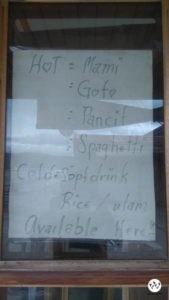 HoT : Mami
: Goto
: Pancit
: Spaghetti
Cold: Softdrink
Rice / ulam
Available Here!